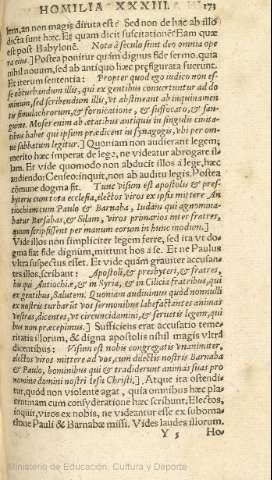 HOMILIA XXXIII. 173
lem, an non magis diruta est? Sed non de hac ab illo
dicta sunt hæc. Et quam dicit suscitationem? Eam quæ
est post Babylonē. Nota à seculo sunt deo omnia ope
ra eius.] Postea ponitur quàm dignus fide sermo. quia
nihil nouum, sed ab antiquo hæc præfigurata fuerunt.
Et iterum sententia: Propter quod ego iudico non es-
se obturbandum illis, qui ex gentibus conuertuntur ad do
minum, sed scribendum illis, vt abstineant ab inquinamen
tis simulachrorum, & fornicatione, & suffocato, & san-
guine. Moses enim ab ætatibus antiquis in singulis ciuita-
tibus habet qui ipsum prædicent in synagogis, vbi per om-
ne sabbatum legitur.] Quoniam non audierant legem,
meritò hæc imperat de lege, ne videatur abrogare il-
lam. Et vide quomodo non abducit illos à lege, hæc
audiendo: Censeo inquit, non ab auditu legis. Postea
cōmune dogma fit. Tunc visum est apostolis & pres-
byteris cum tota ecclesia, electos viros ex ipsis mittere An
tiochiam cum Paulo & Barnaba, Iudam qui cognomina-
batur Barsabas, & Silam, viros primarios inter fratres,
quum scripsissent per manum eorum in hunc modum.]
Vide illos non simpliciter legem ferre, sed ita vt do-
gma fiat fide dignum, mittunt hos à se. Et ne Paulus
vltra suspectus esset. Et vide quàm grauiter accusan-
tes illos, scribant: Apostoli, & presbyteri, & fratres,
his qui Antiochiæ, & in Syria, & in Cilicia fratribus, qui
ex gentibus, Salutem. Quoniam audiuimus quòd nonnulli
ex nostris turbarūt vos sermonibus labefactantes animas
vestras, dicentes, vt circuncidamini, & seruetis legem, qui
bus non præcepimus.] Sufficiens erat accusatio teme-
ritatis illorum, & digna apostolis nihil magis vltrà
dicentibus: Visum est nobis congregatis vnanimiter,
electos viros mittere ad vos, cum dilectis nostris Barnaba
& Paulo, hominibus qui & tradiderunt animas suas pro
nomine domini nostri Iesu Christi.] Atque ita ostendi-
tur, quòd non violenter agat, quia omnibus hæc pla-
cent: cum consyderatione hæc scribunt, Electos,
inquit, viros ex nobis, ne videantur esse ex suborna-
tione Pauli & Barnabæ missi. Vides laudes illorum.
Y 5 Ho-
Ministerio de Educación, Cultura y Deporte